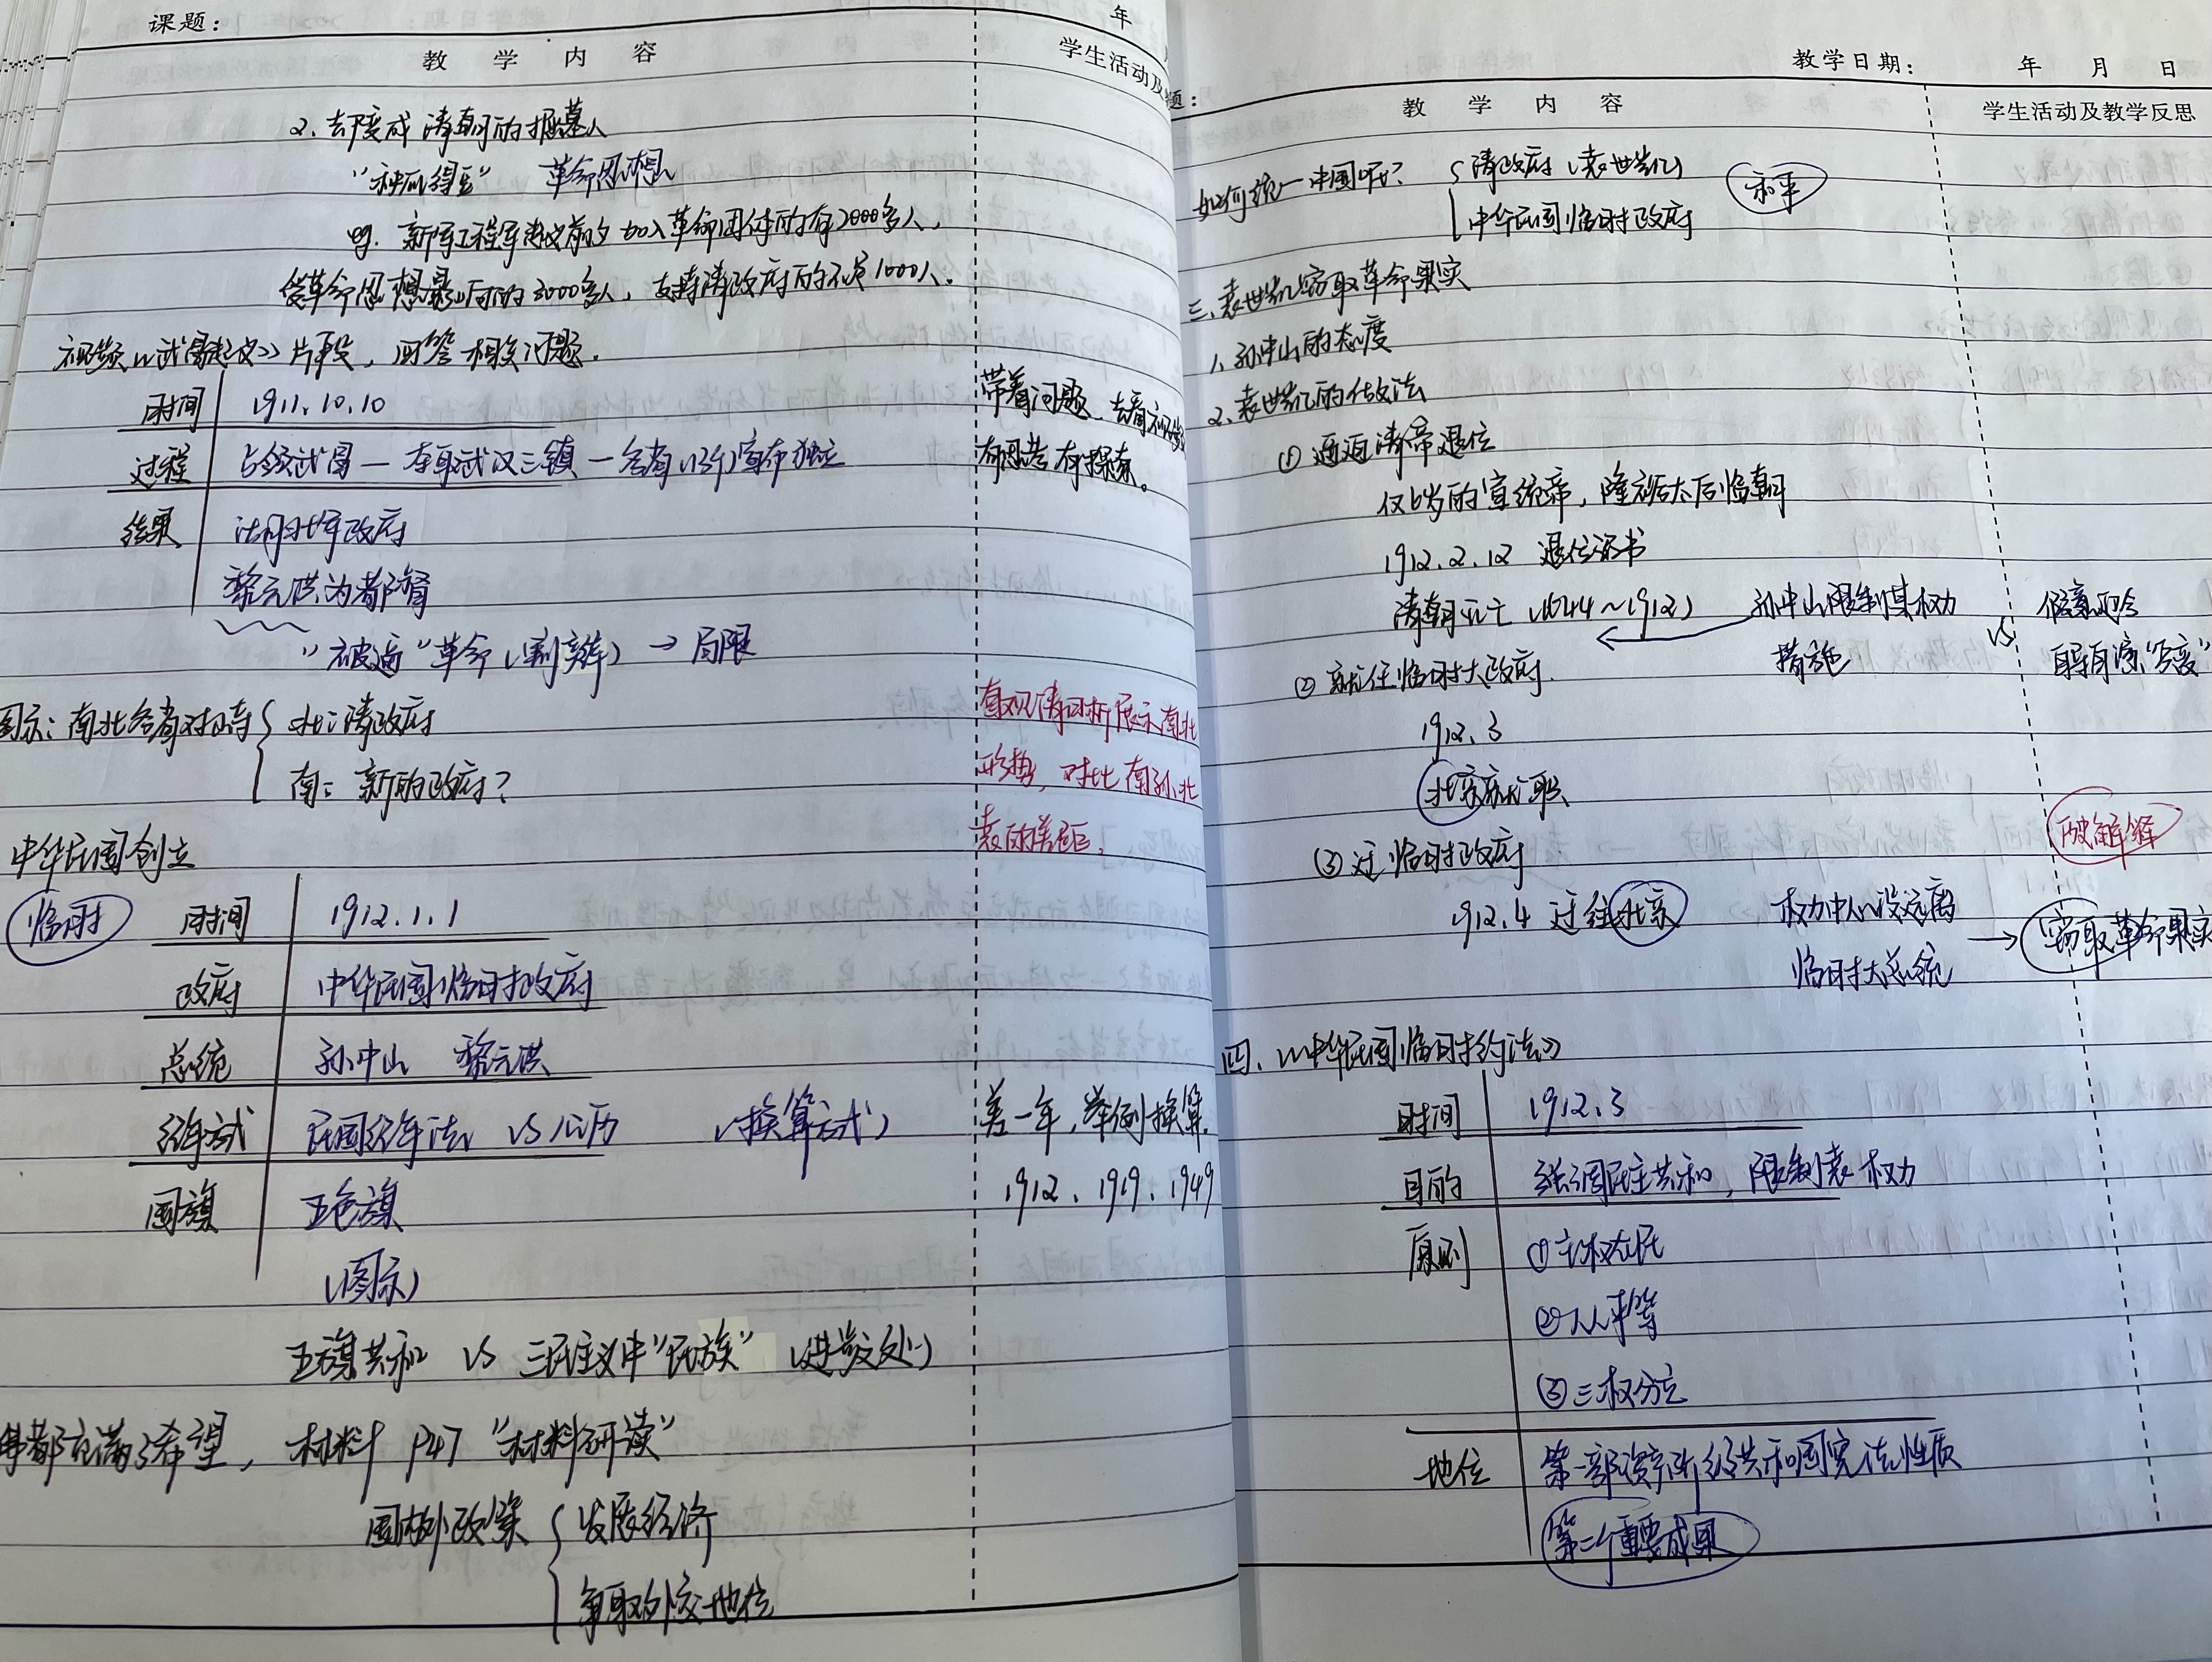 课题：
年
教 学 内 容
学生活动及
2、却变成清朝的掘墓人
革命思想
eg. 新军工程军起义前夕加入革命团体的有2000多人，
受革命思想影响的3000多人，支持清政府的不足1000人。
视频《武昌起义》片段，回答相关问题。
时间 1911.10.10
过程 占领武昌—在武汉三镇—各省（13个）宣布独立
结果 湖北军政府
黎元洪为都督
“被逼”革命（剪辫）→局限
带着问题，去看视频
有思考有探索。
图示：南北各省对峙
北：清政府
南：新的政府？
直观清晰展示南北
形势，对比南孙北
袁的差距。
中华民国创立
临时
时间 1912.1.1
政府 中华民国临时政府
总统 孙中山 黎元洪
纪年方式 民国纪年法 VS 公历 （换算方式）
国旗 五色旗
（图示）
差一年，举例换算。
1912、1919、1949
五旗共和 VS 三民主义中“民族” （进步处）
都充满了希望，材料 P47 “材料研读”
国内外政策
发展经济
争取外交地位
题：
教学日期： 年 月 日
教 学 内 容
学生活动及教学反思
如何统一中国呢？
清政府（袁世凯）
中华民国临时政府
和平
三、袁世凯窃取革命果实
1、孙中山的态度
2、袁世凯的做法
① 逼迫清帝退位
仅6岁的宣统帝，隆裕太后临朝
1912.2.12 退位诏书
清朝灭亡（1644～1912）
孙中山限制其权力
措施
VS
自导自演“兵变”
② 就任临时大政府
1912.3
北京就职
③ 迁临时政府
1912.4 迁往北京
权力中心没远离
临时大总统
→ 窃取革命果实
破解释
四、《中华民国临时约法》
时间 1912.3
目的 强调民主共和，限制袁权力
原则 ①主权在民
②人人平等
③三权分立
地位 第一部资产阶级共和国宪法性质
第二个重要成果